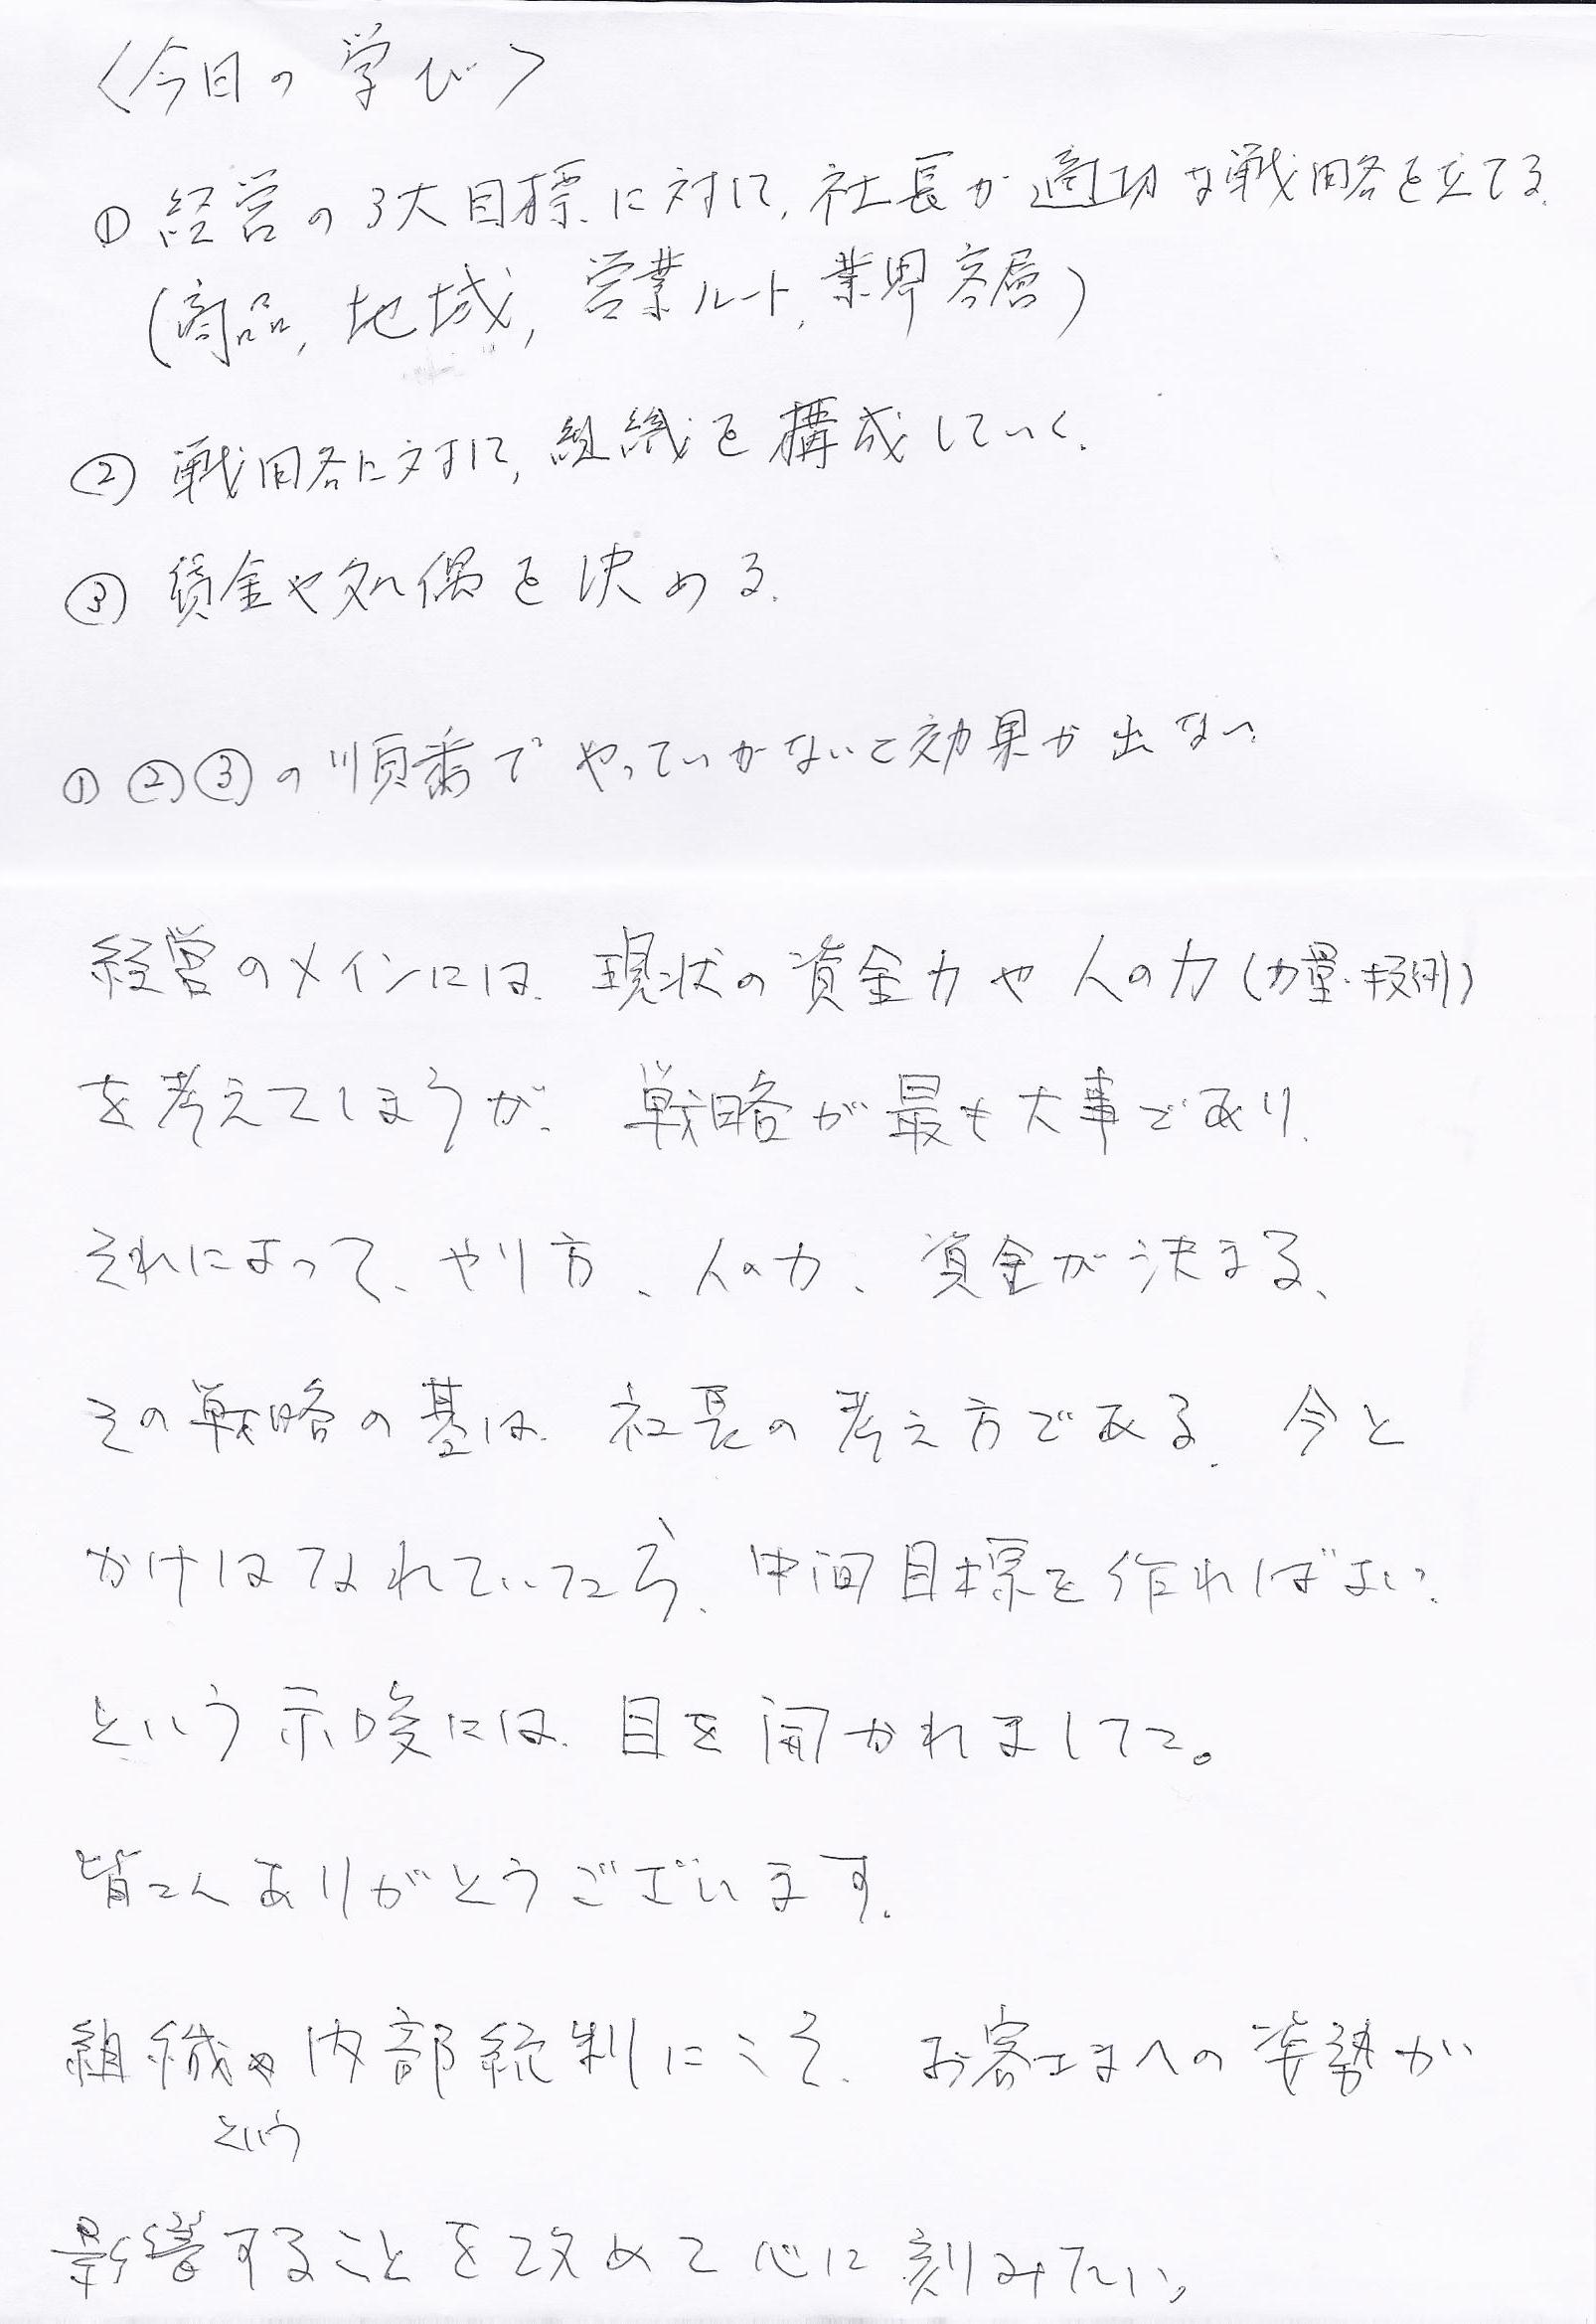 〈今日の学び〉
① 経営の3大目標に対して、社長が適切な戦略を立てる.
(商品, 地域, 営業ルート, 業界客層)
② 戦略に対して, 組織を構成していく.
③ 賃金や処偶を決める.
①②③の順番でやっていかないと効果が出ない
経営のメインには、現状の資金力や人の力(力量・技術)
を考えてしまうが、戦略が最も大事であり、
それによって、やり方、人の力、資金が決まる、
その戦略の基は、社長の考え方である. 今と
かけはなれていたら、中間目標を作ればよい.
という示唆には、目を開かれました。
皆さんありがとうございます.
組織の内部統制にこそ、お客さまへの姿勢が
という
影響することを改めて心に刻みたい,